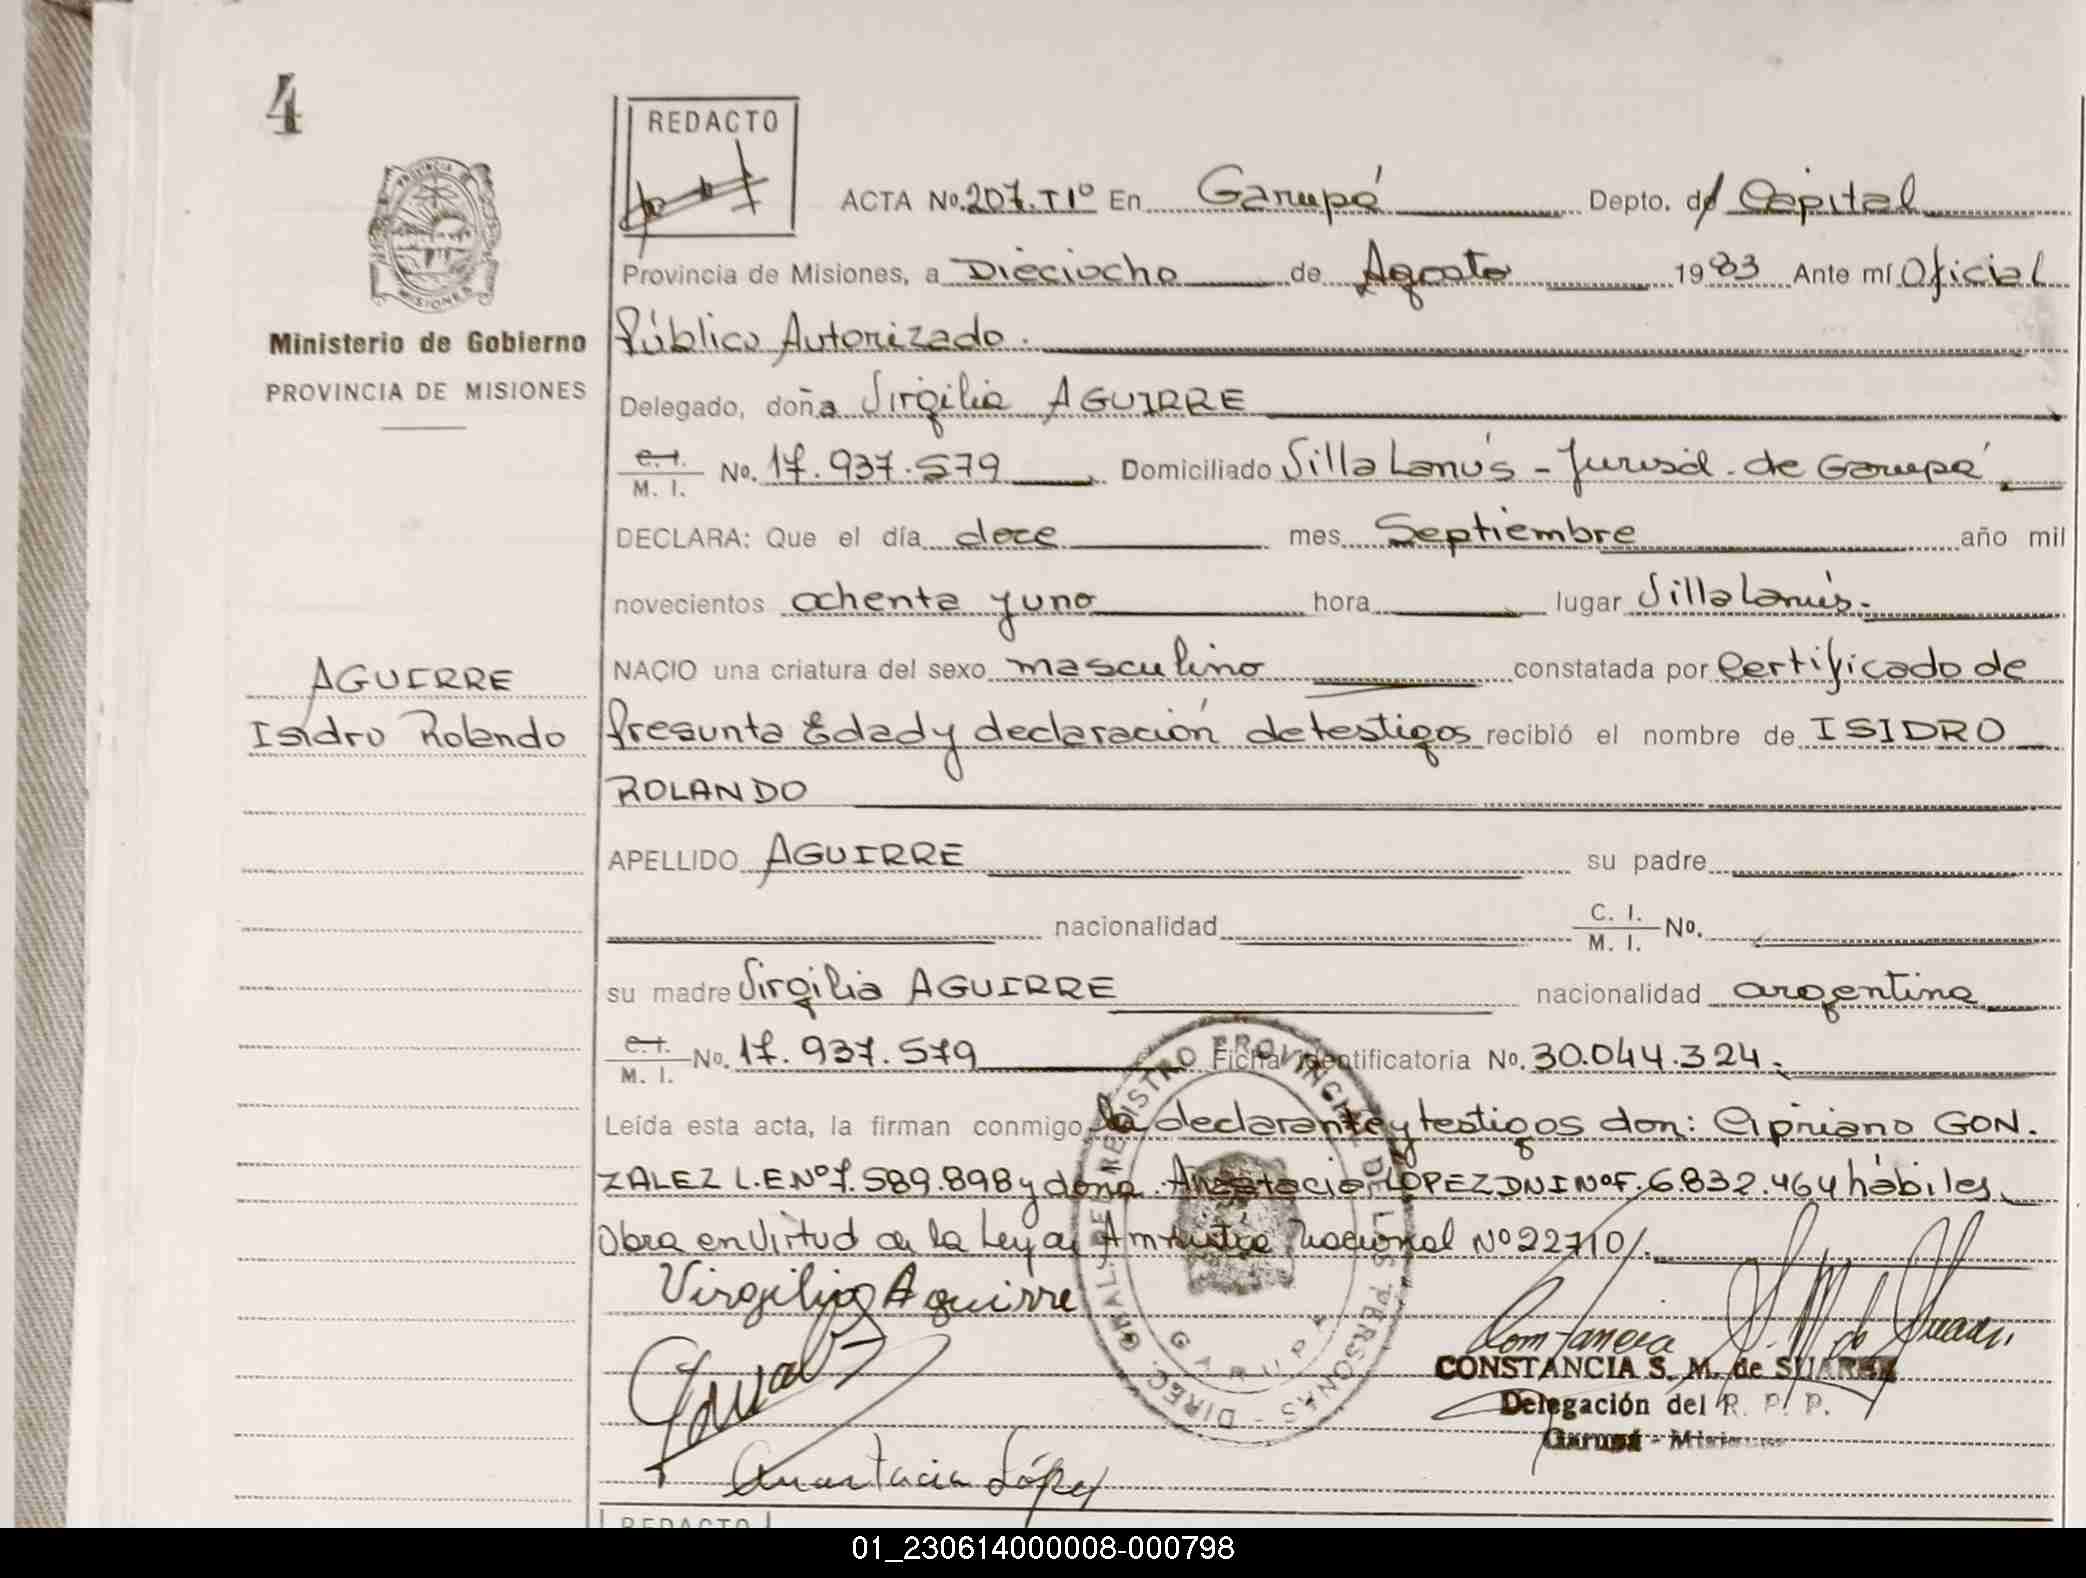 4
REDACTO
PROVINCIA
MISIONES
Ministerio de Gobierno
PROVINCIA DE MISIONES
ACTA No. 207. T Iº En Garupá Depto. de Capital
Provincia de Misiones, a Dieciocho de Agosto 1983 Ante mí Oficial
Público Autorizado.
Delegado, doña Virgilia AGUIRRE
C.I. M. I. No. 17.937.579 Domiciliado Villa Lanús - Jurisd. de Garupá
DECLARA: Que el día doce mes Septiembre año mil
novecientos ochenta y uno hora lugar Villa Lanús.
NACIO una criatura del sexo masculino constatada por Certificado de
Presunta Edad y declaración de testigos recibió el nombre de ISIDRO
ROLANDO
AGUIRRE
Isidro Rolando
APELLIDO AGUIRRE su padre
nacionalidad C. I. M. I. No.
su madre Virgilia AGUIRRE nacionalidad argentina
C.I. M. I. No. 17.937.579 Ficha Identificatoria No. 30.044.324.
Leída esta acta, la firman conmigo la declarante y testigos don: Cipriano GON.
ZALEZ L.E Nº 7.589.898 y doña Anastacia LOPEZ DNI Nº F. 6.832.464 hábiles
Obra en Virtud de la Ley de Amnistía Nacional Nº 22710/.
Virgilia Aguirre
Anastacia López
Constancia S. M. de Suarez
CONSTANCIA S. M. de SUAREZ
Delegación del R. P. P.
Garupá - Misiones
DIREC. GRAL. DE REGISTRO PROVINCIAL DE LAS PERSONAS -
GARUPA
REDACTO
01_230614000008-000798